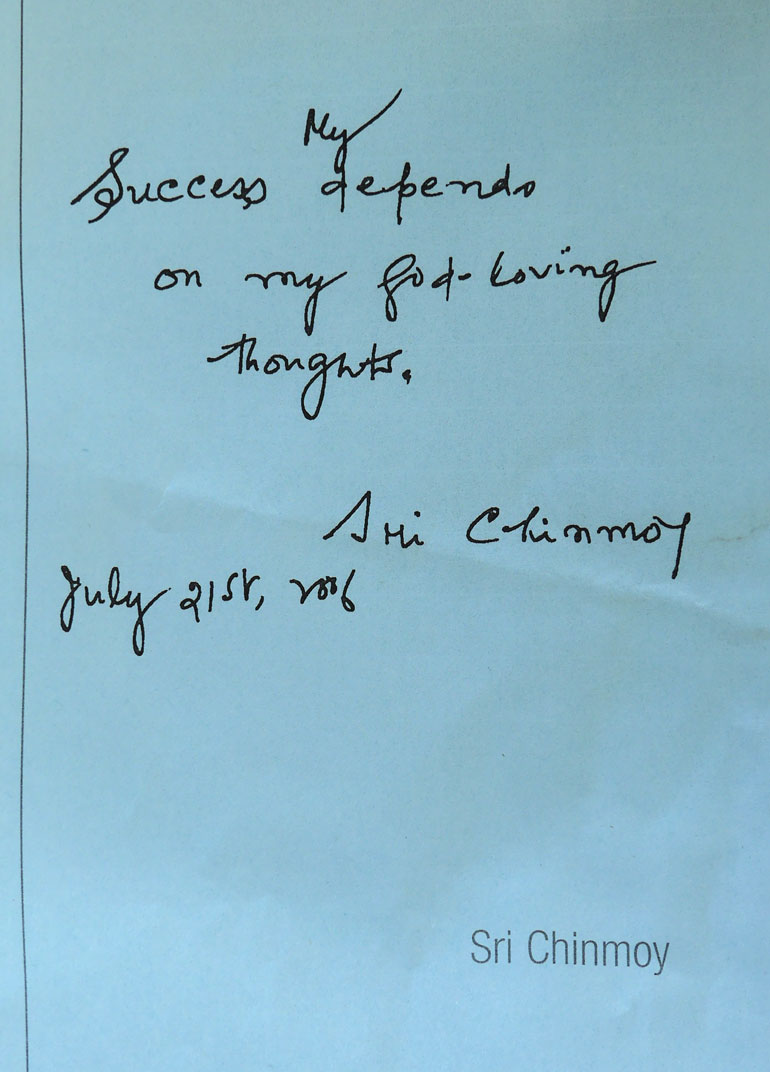 My
Success depends
on my God-loving
thoughts.
Sri Chinmoy
July 21st, 2006
Sri Chinmoy